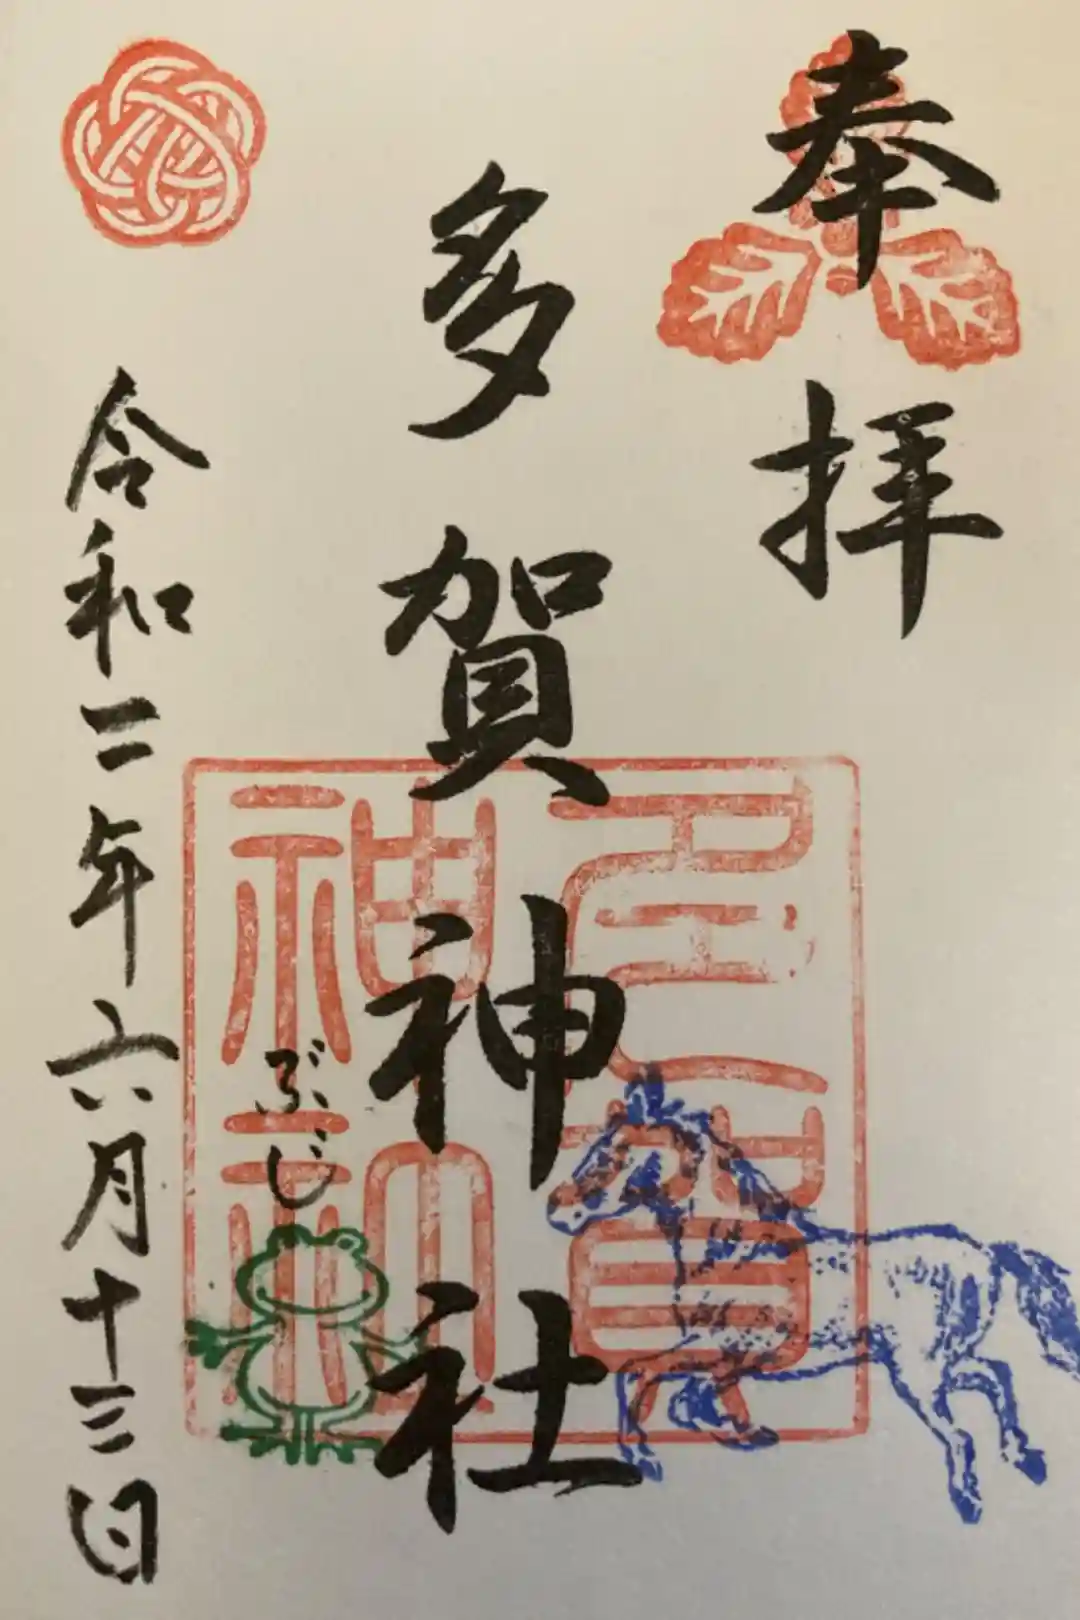 奉拝
多賀神社
多賀神社
ぶじ
令和二年六月十三日